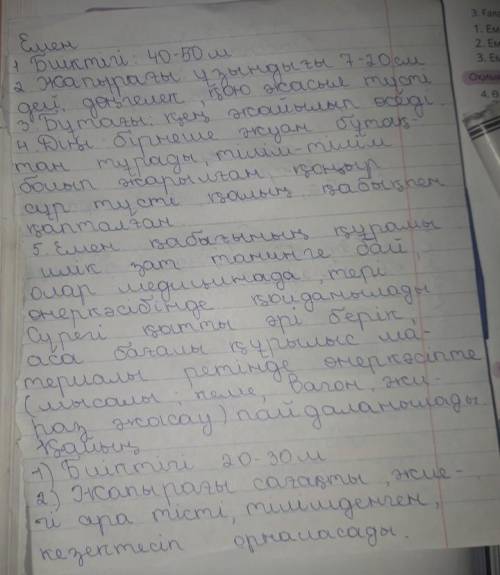 Емен
1 Биіктігі 40-50 м
2 Жапырағы ұзындығы 7-20 см
дей, дөңгелек, қою жасыл түсті
3 Бұтағы: кең жайылып өседі
4 Діңі бірнеше жуан бұтақ-
тан тұрады, тілім-тілім
болып жарылған қоңыр
сұр түсті қалың қабықпен
қапталған
5. Емен қабығының құрамы
илік зат танинге бай,
олар медицинада, тері
өнеркәсібінде қолданылады
Сүрегі қатты әрі берік,
аса бағалы құрылыс ма-
териалы ретінде өнеркәсіпте
(мысалы: кеме, вагон, жи-
һаз жасау) пайдаланылады
Қайың
1) Биіктігі 20-30 м
2.) Жапырағы сағақты, жие-
гі ара тісті, тілімденген,
кезектесіп орналасады.
1. Ем
2. Ем
3. Ем
4.